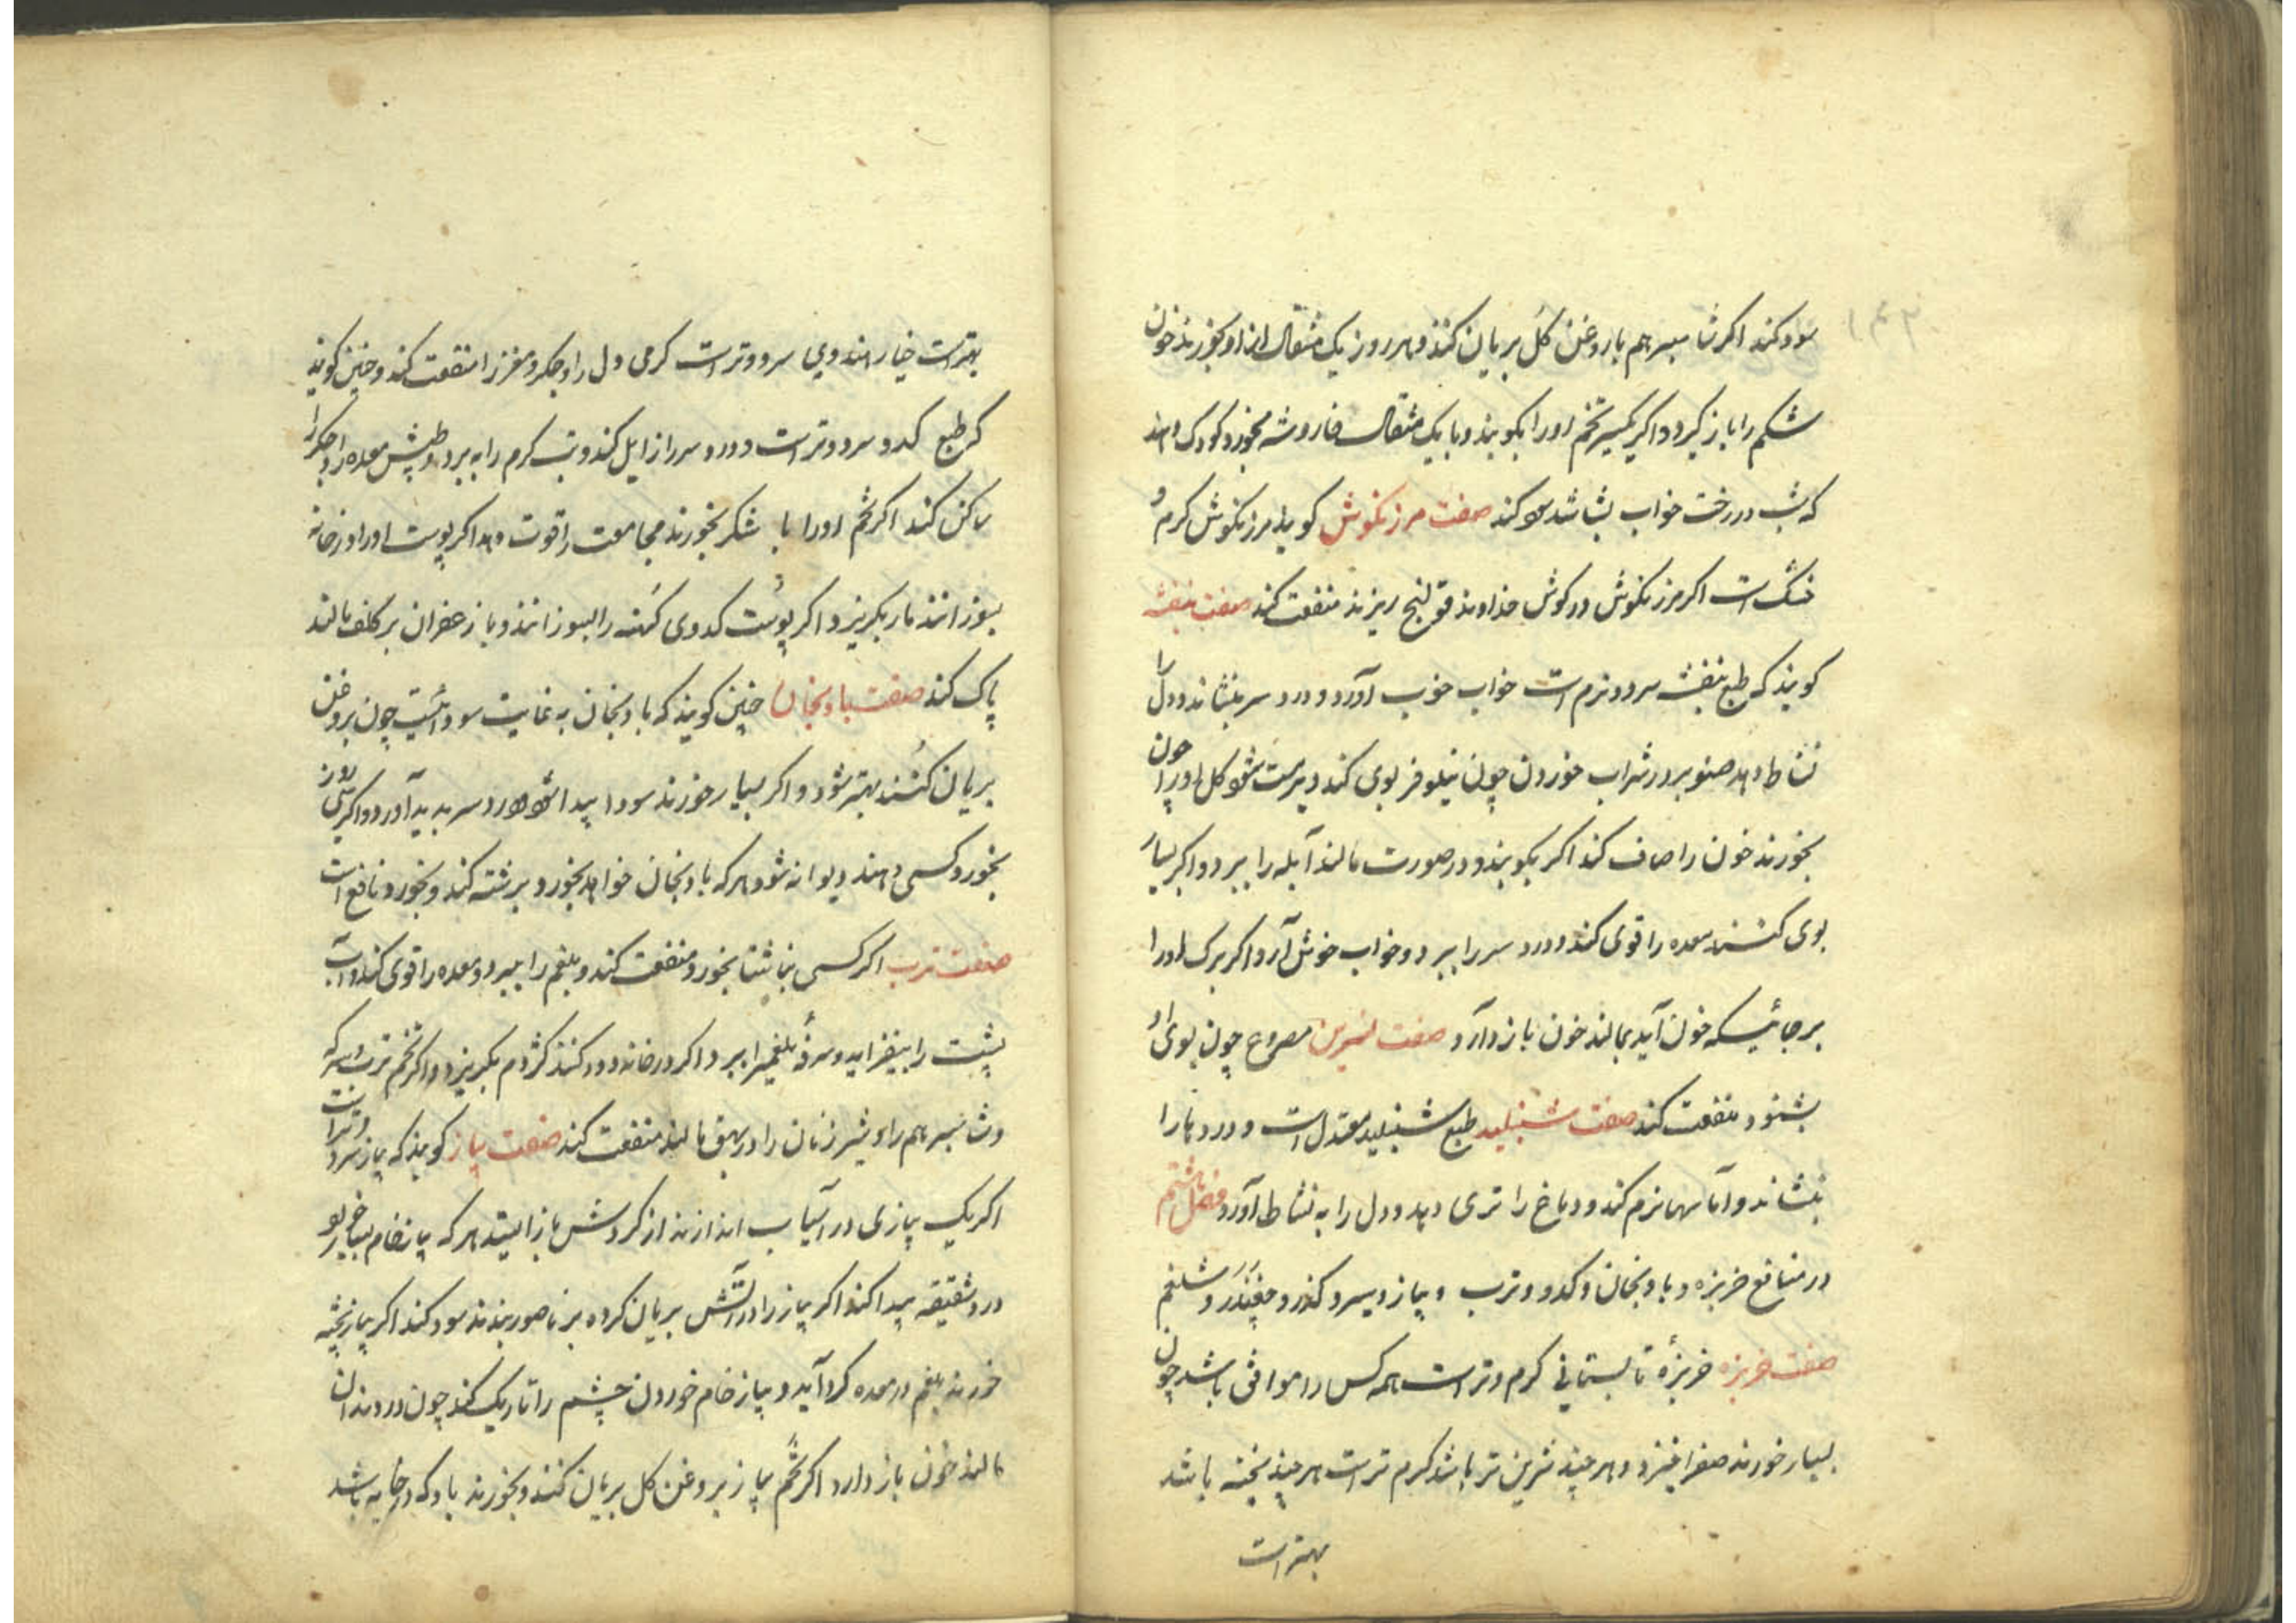 سود کند اکر شاسبرهم با روغن کل بریان کنند و هر روز یک مثقال از او بخورند خون
شکم را باز گیرد و اکر تخم او را بکوبند و با یک مثقال بخورد کودک دهند
که شب در رخت خواب بشاشد سود کند صفت مرزنکوش کویند مرزنکوش کرم و
خشک است اکر مرزنکوش در کوش خداوند قولنج ریزند منفعت کند صفت بنفشه
کویند که طبع بنفشه سرد و نرم است خواب خوب آورد و درد سر بنشاند و دل را
نشاط دهد صنوبر در شراب خوردن چون نیلوفر بوی کند دیر مست شود کل او را چون
بخورند خون را صاف کند اکر بکوبند و در صورت مالند آبله را ببرد و اکر بسیار
بوی کنند معده را قوی کند و درد سر را ببرد و خواب خوش آرد اکر برک او را
بر جائیکه خون آید بمالند خون باز دارد صفت نسرین مصروع چون بوی او
بشنود منفعت کند صفت شنبلید طبع شنبلید معتدل است و دردها را
بنشاند و آماسها نرم کند و دماغ را تری دهد و دل را به نشاط آورد فصل هشتم
در منافع خربزه و بادنجان و کدو و ترب و پیاز و سیر و کندر و چغندر و شلغم
صفت خربزه خربزهٔ تابستانی کرم و تر است همه کس را موافق باشد چون
بسیار خورند صفرا خیزد و هر چند شرین تر باشد کرم تر است هر چند پخته باشد
بهتر است
بهتر است خیار هندوی سرد و تر است کرمی دل را و جکر و مغز را منفعت کند و چنین کویند
که طبع کدو سرد و تر است و درد سر زایل کند و تب کرم را ببرد و طپش معده را و جکر را
ساکن کند اکر تخم او را با شکر بخورند مجامعت را قوت دهد اکر پوست او را در خانه
بسوزانند مار بکریزد اکر پوست کدوی کهنه را بسوزانند و با زعفران بر کلف مالند
پاک کند صفت بادنجان چنین کویند که بادنجان به غایت سودائیست چون بروغن
بریان کنند بهتر شود و اکر بسیار خورند سودا پیدا شود درد سر پدید آورد و اکر سی روز
بخورد کسی دهند دیوانه شود هر که بادنجان خواهد بخورد برشته کند و بخورد نافع است
صفت ترب اکر کسی بناشتا بخورد منفعت کند و بلغم را ببرد و معده را قوی کند و آب
پشت را بیفزاید و سرفهٔ بلغمی را ببرد اکر در خانه دود کنند کژدم بکریزد و اکر تخم ترب و سرکه
و شاسبرهم را و شیر زنان را در بهق مالند منفعت کند صفت پیاز کویند که پیاز سرد و تر است
اکر یک پیازی در آسیاب اندازند از کردش باز ایستد هر که پیاز خام بسیار خورد
درد شقیقه پیدا کند اکر پیاز را در آتش بریان کرده بر ناصور بندند سود کند اکر پیاز پخته
خورند بلغم در معده کرد آید و پیاز خام خوردن چشم را تاریک کند چون در دندان
مالند خون باز دارد اکر تخم پیاز بروغن کل بریان کنند و بخورند بادی که در خایه باشد